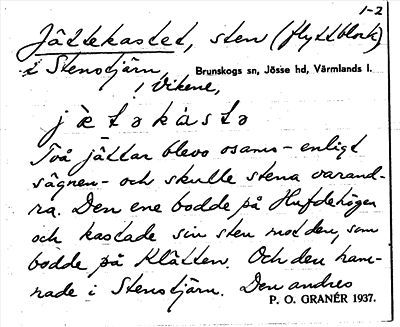 1-2
Jättekastet, sten (flyttblock)
i Stenstjärn, Brunskogs sn, Jösse hd, Värmlands l.
i Vikene,
jètəkàstə
Två jättar blevo osams - enligt
sägnen - och skulle stena varand-
ra. Den ene bodde på Hufdehögen
och kastade sin sten mot den, som
bodde på Klätten. Och den ham-
nade i Stenstjärn. Den andres
P. O. GRANÉR 1937.